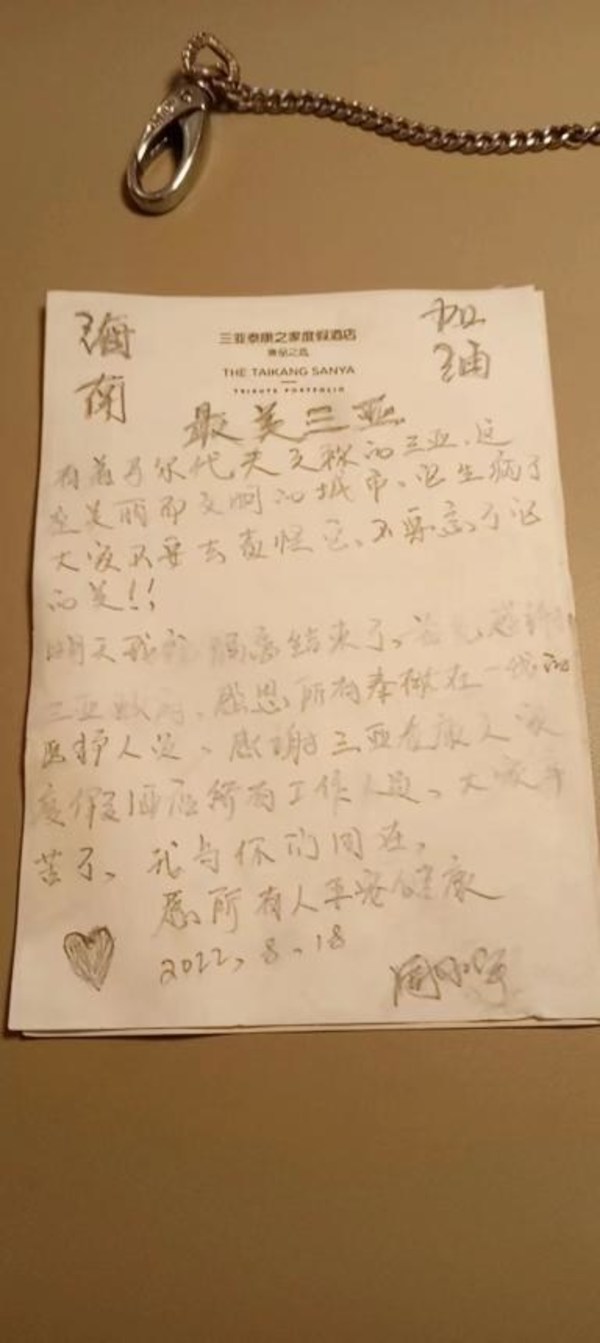 海南
加油
三亚泰康之家度假酒店
臻品之选
THE TAIKANG SANYA
TRIBUTE PORTFOLIO
最美三亚
有着马尔代夫之称的三亚、这
座美丽即文明的城市、它生病了
大家不要去责怪它、不要忘了它
的美!!
明天我 隔离结束了、首先感谢
三亚政府、感恩所有奉献在一线的
医护人员、感谢三亚泰康之家
度假酒店所有工作人员、大家辛
苦了、我与你们同在,
愿所有人平安健康
2022、8、18